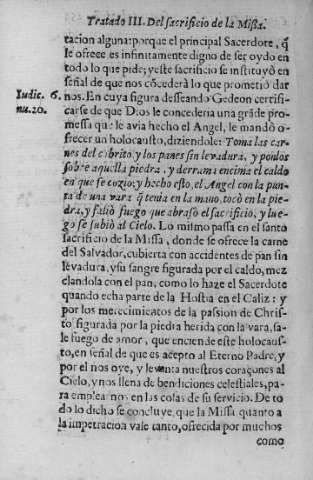 Tratado III. Del sacrificio de la Missa.
tacion alguna: porque el principal Sacerdote, q̃
le ofrece es infinitamente digno de ser oydo en
todo lo que pide; y este sacrificio se instituyò en
señal de que nos cõcederà lo que prometiò dar
Iudic. 6. nos. En cuya figura desseando Gedeon certifi-
nu. 20. carse de que Dios le concederia una grãde pro-
messa que le avia hecho el Angel, le mandò o-
frecer un holocausto, diziendole: Toma las car-
nes del cabrito, y los panes sin levadura, y ponlos
sobre aquella piedra, y derrama encima el caldo
en que se coziò; y hecho esto, el Angel con la pun-
ta de una vara q̃ tenia en la mano, tocò en la pie-
dra, y saliò fuego que abrasò el sacrificio, y lue-
go se subiò al Cielo. Lo mismo passa en el santo
sacrificio de la Missa, donde se ofrece la carne
del Salvador, cubierta con accidentes de pan sin
levadura, y su sangre figurada por el caldo, mez
clandola con el pan, como lo haze el Sacerdote
quando echa parte de la Hostia en el Caliz: y
por los merecimientos de la passion de Chris-
to figurada por la piedra herida con la vara, sa-
le fuego de amor, que enciende este holocaus-
to, en señal de que es acepto al Eterno Padre, y
por el nos oye, y levanta nuestros coraçones al
Cielo, y nos llena de bendiciones celestiales, pa-
ra emplearnos en las cosas de su servicio. De to
do lo dicho se concluye, que la Missa quanto a
la impetracion vale tanto, ofrecida por muchos
como